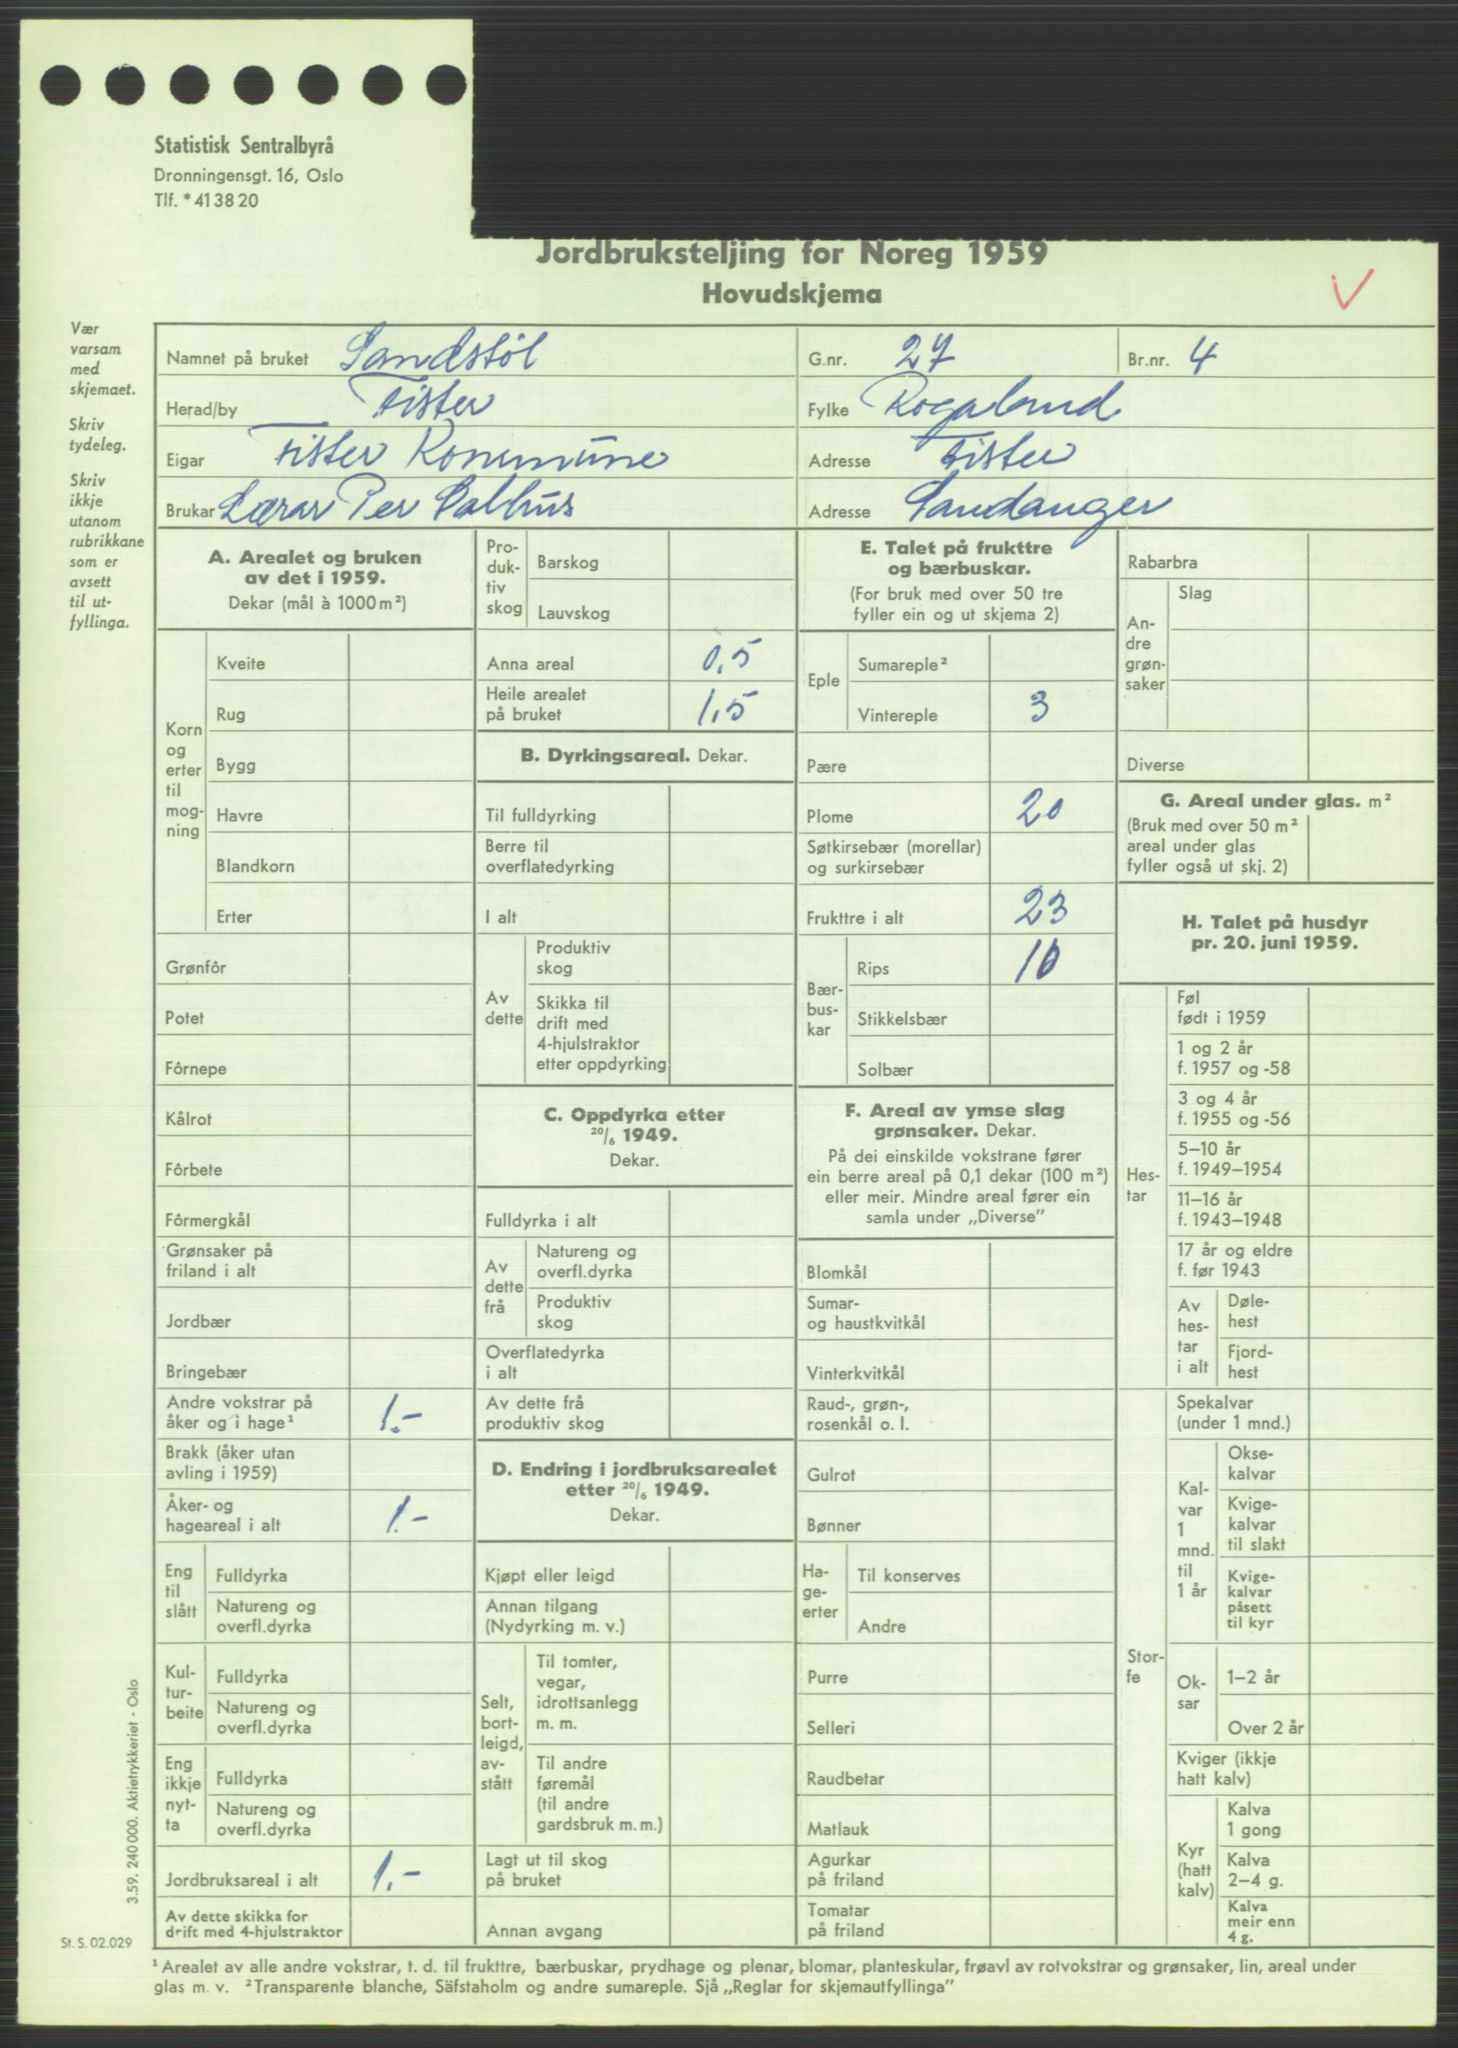 Statistisk Sentralbyrå
Dronningensgt. 16, Oslo
Tlf. *41 38 20
Jordbruksteljing for Noreg 1959
Hovudskjema
V
Vær
varsam
med
skjemaet.
Skriv
tydeleg.
Skriv
ikkje
utanom
rubrikkane
som er
avsett
til ut-
fyllinga.
Namnet på bruket Sandstøl G.nr. 27 Br.nr. 4
Herad/by Fister Fylke Rogaland
Eigar Fister Kommune Adresse Fister
Brukar Lærar Per Salhus Adresse Sandanger
A. Arealet og bruken
av det i 1959.
Dekar (mål à 1000 m²)
Korn
og
erter
til
mog-
ning
Kveite
Rug
Bygg
Havre
Blandkorn
Erter
Grønfôr
Potet
Fôrnepe
Kålrot
Fôrbete
Fôrmergkål
Grønsaker på
friland i alt
Jordbær
Bringebær
Andre vokstrar på
åker og i hage¹ 1.-
Brakk (åker utan
avling i 1959)
Åker- og
hageareal i alt 1.-
Eng
til
slått
Fulldyrka
Natureng og
overfl.dyrka
Kul-
tur-
beite
Fulldyrka
Natureng og
overfl.dyrka
Eng
ikkje
nyt-
ta
Fulldyrka
Natureng og
overfl.dyrka
Jordbruksareal i alt 1.-
Av dette skikka for
drift med 4-hjulstraktor
Pro-
duk-
tiv
skog
Barskog
Lauvskog
Anna areal 0,5
Heile arealet
på bruket 1,5
B. Dyrkingsareal. Dekar.
Til fulldyrking
Berre til
overflatedyrking
I alt
Av
dette
Produktiv
skog
Skikka til
drift med
4-hjulstraktor
etter oppdyrking
C. Oppdyrka etter
20/6 1949.
Dekar.
Fulldyrka i alt
Av
dette
frå
Natureng og
overfl.dyrka
Produktiv
skog
Overflatedyrka
i alt
Av dette frå
produktiv skog
D. Endring i jordbruksarealet
etter 20/6 1949.
Dekar.
Kjøpt eller leigd
Annan tilgang
(Nydyrking m. v.)
Selt,
bort-
leigd,
av-
stått
Til tomter,
vegar,
idrottsanlegg
m. m.
Til andre
føremål
(til andre
gardsbruk m. m.)
Lagt ut til skog
på bruket
Annan avgang
E. Talet på frukttre
og bærbuskar.
(For bruk med over 50 tre
fyller ein og ut skjema 2)
Eple
Sumareple²
Vintereple 3
Pære
Plome 20
Søtkirsebær (morellar)
og surkirsebær
Frukttre i alt 23
Bær-
bus-
kar
Rips 10
Stikkelsbær
Solbær
F. Areal av ymse slag
grønsaker. Dekar.
På dei einskilde vokstrane fører
ein berre areal på 0,1 dekar (100 m²)
eller meir. Mindre areal fører ein
samla under „Diverse”
Blomkål
Sumar-
og haustkvitkål
Vinterkvitkål
Raud-, grøn-,
rosenkål o. l.
Gulrot
Bønner
Ha-
ge-
erter
Til konserves
Andre
Purre
Selleri
Raudbetar
Matlauk
Agurkar
på friland
Tomatar
på friland
Rabarbra
An-
dre
grøn-
saker
Slag
Diverse
G. Areal under glas. m²
(Bruk med over 50 m²
areal under glas
fyller også ut skj. 2)
H. Talet på husdyr
pr. 20. juni 1959.
Hes-
tar
Føl
født i 1959
1 og 2 år
f. 1957 og -58
3 og 4 år
f. 1955 og -56
5–10 år
f. 1949–1954
11–16 år
f. 1943–1948
17 år og eldre
f. før 1943
Av
hes-
tar
i alt
Døle-
hest
Fjord-
hest
Stor-
fe
Spekalvar
(under 1 mnd.)
Kal-
var
1
mnd.
til
1 år
Okse-
kalvar
Kvige-
kalvar
til slakt
Kvige-
kalvar
påsett
til kyr
Ok-
sar
1–2 år
Over 2 år
Kviger (ikkje
hatt kalv)
Kyr
(hatt
kalv)
Kalva
1 gong
Kalva
2–4 g.
Kalva
meir enn
4 g.
3.59. 240 000. Aktietrykkeriet - Oslo
St. S. 02.029
¹ Arealet av alle andre vokstrar, t. d. til frukttre, bærbuskar, prydhage og plenar, blomar, planteskular, frøavl av rotvokstrar og grønsaker, lin, areal under
glas m. v. ² Transparente blanche, Säfstaholm og andre sumareple. Sjå „Reglar for skjemautfyllinga”